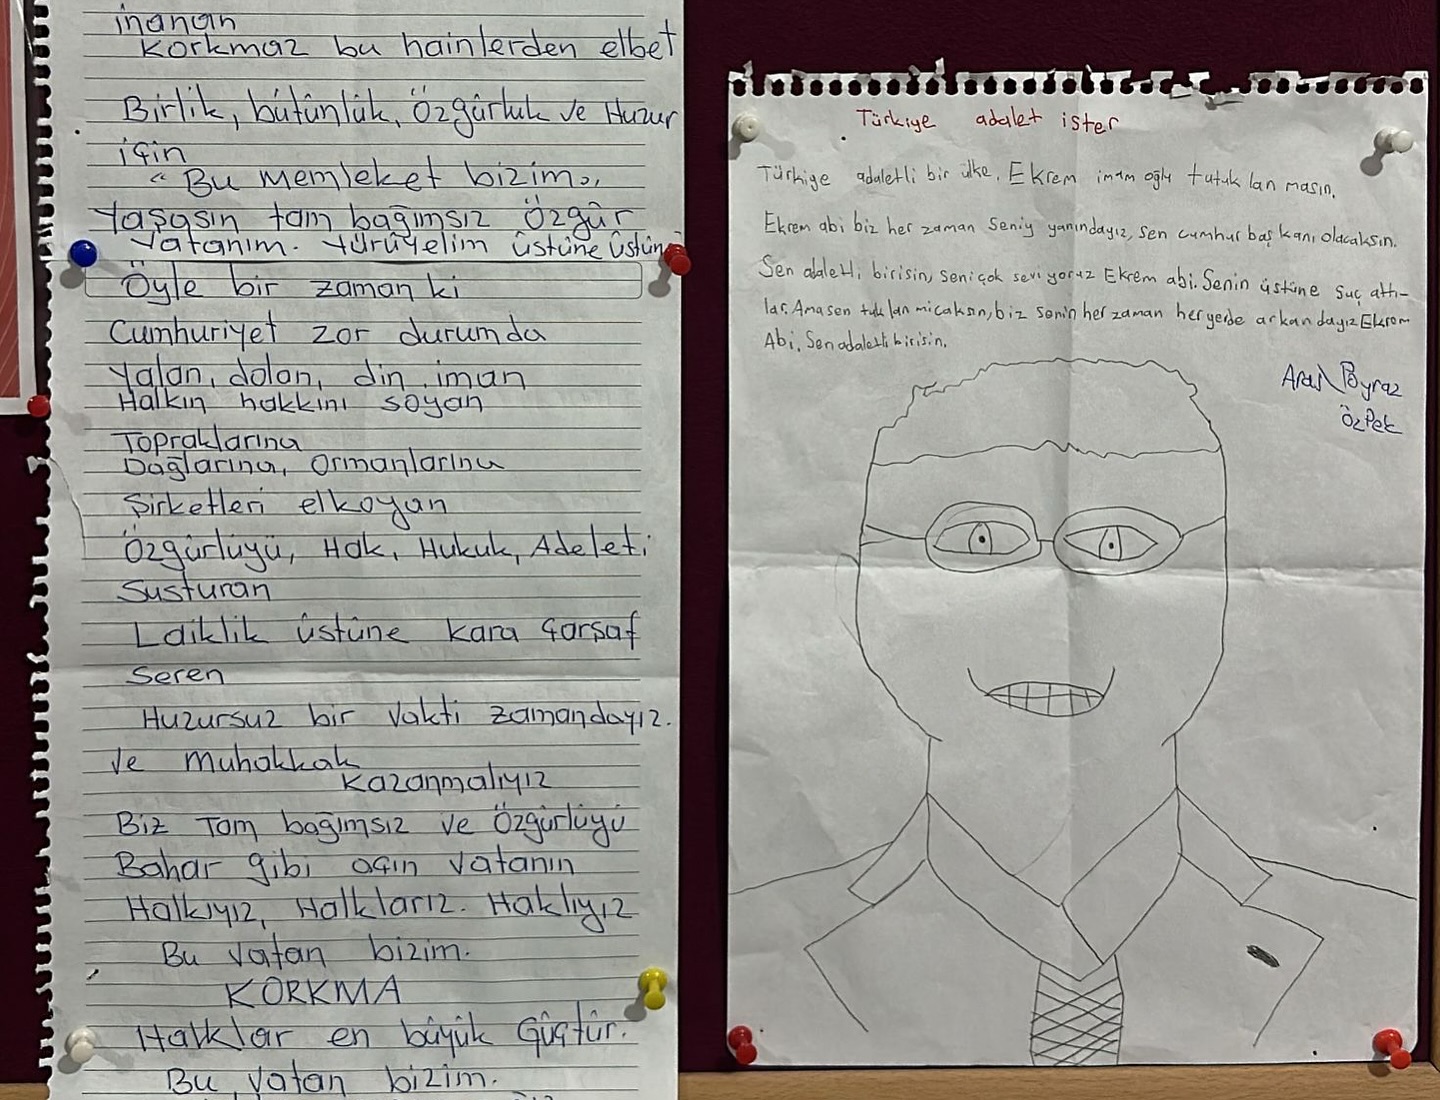 inanan
Korkmaz bu hainlerden elbet
Birlik, bütünlük, Özgürlük ve Huzur
için
"Bu memleket bizim",
Yaşasın tam bağımsız Özgür
Vatanım. Yürüyelim üstüne üstüne
Öyle bir zaman ki
Cumhuriyet zor durumda
Yalan, dolan, din, iman
Halkın hakkını soyan
Topraklarına
Dağlarına, Ormanlarına
Şirketleri elkoyan
Özgürlüyü, Hak, Hukuk, Adeleti
Susturan
Laiklik üstüne kara çarşaf
Seren
Huzursuz bir vakti zamandayız.
Ve muhakkak
Kazanmalıyız
Biz Tam bağımsız ve Özgürlüyü
Bahar gibi açın vatanın
Halkıyız, Halklarız. Haklıyız
Bu vatan bizim.
KORKMA
Halklar en büyük Güçtür.
Bu vatan bizim.
Türkiye adalet ister
Türkiye adaletli bir ülke. Ekrem imamoğlu tutuklanmasın.
Ekrem abi biz her zaman seniy yanındayız, sen cumhurbaşkanı olacaksın.
Sen adaletli birisin, seni çok seviyoruz Ekrem abi. Senin üstüne suç attı-
lar. Ama sen tuklanmicaksın, biz senin her zaman heryerde arkandayız Ekrem
Abi. Sen adaletli birisin.
Poyraz
Özpek